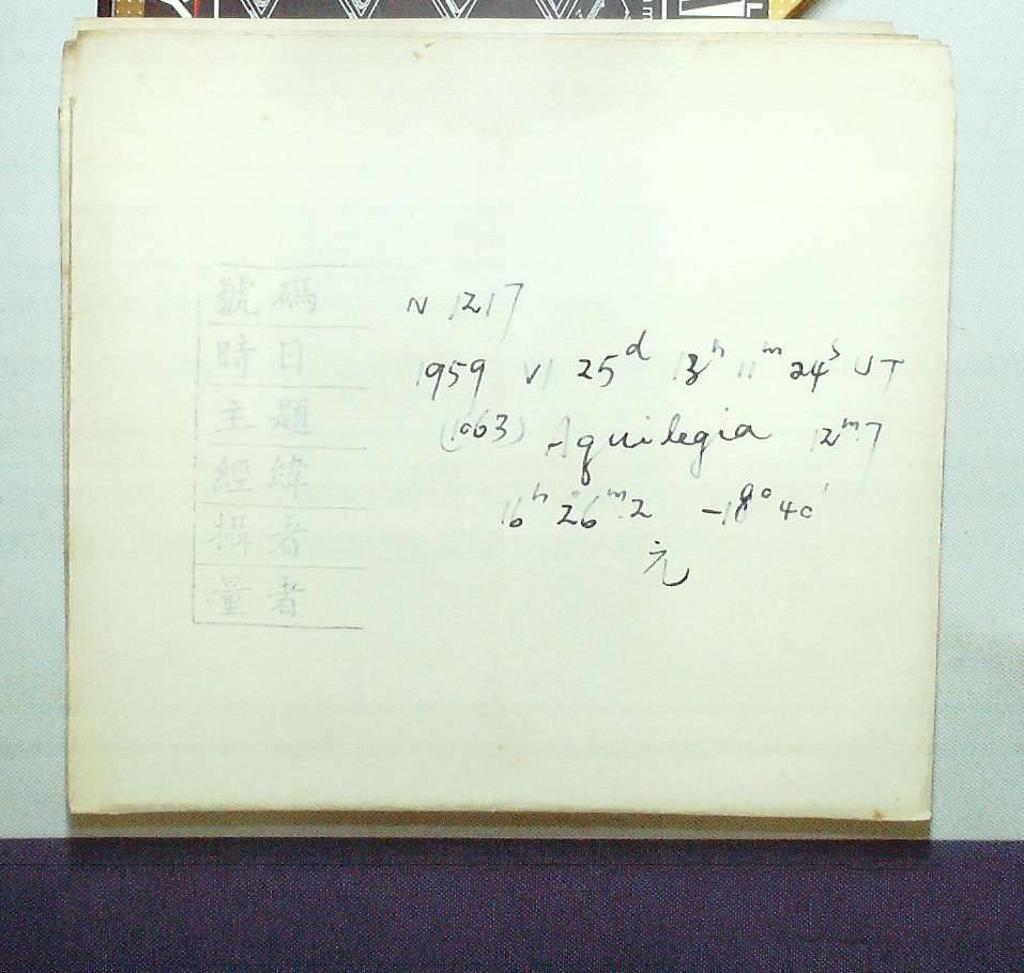 號碼 N 1217
時日 1959 VI 25ᵈ 13ʰ 11ᵐ 24ˢ UT
主題 (1063) Aquilegia 12ᵐ.7
經緯 16ʰ 26ᵐ.2 -18° 40'
攝者 元
量者